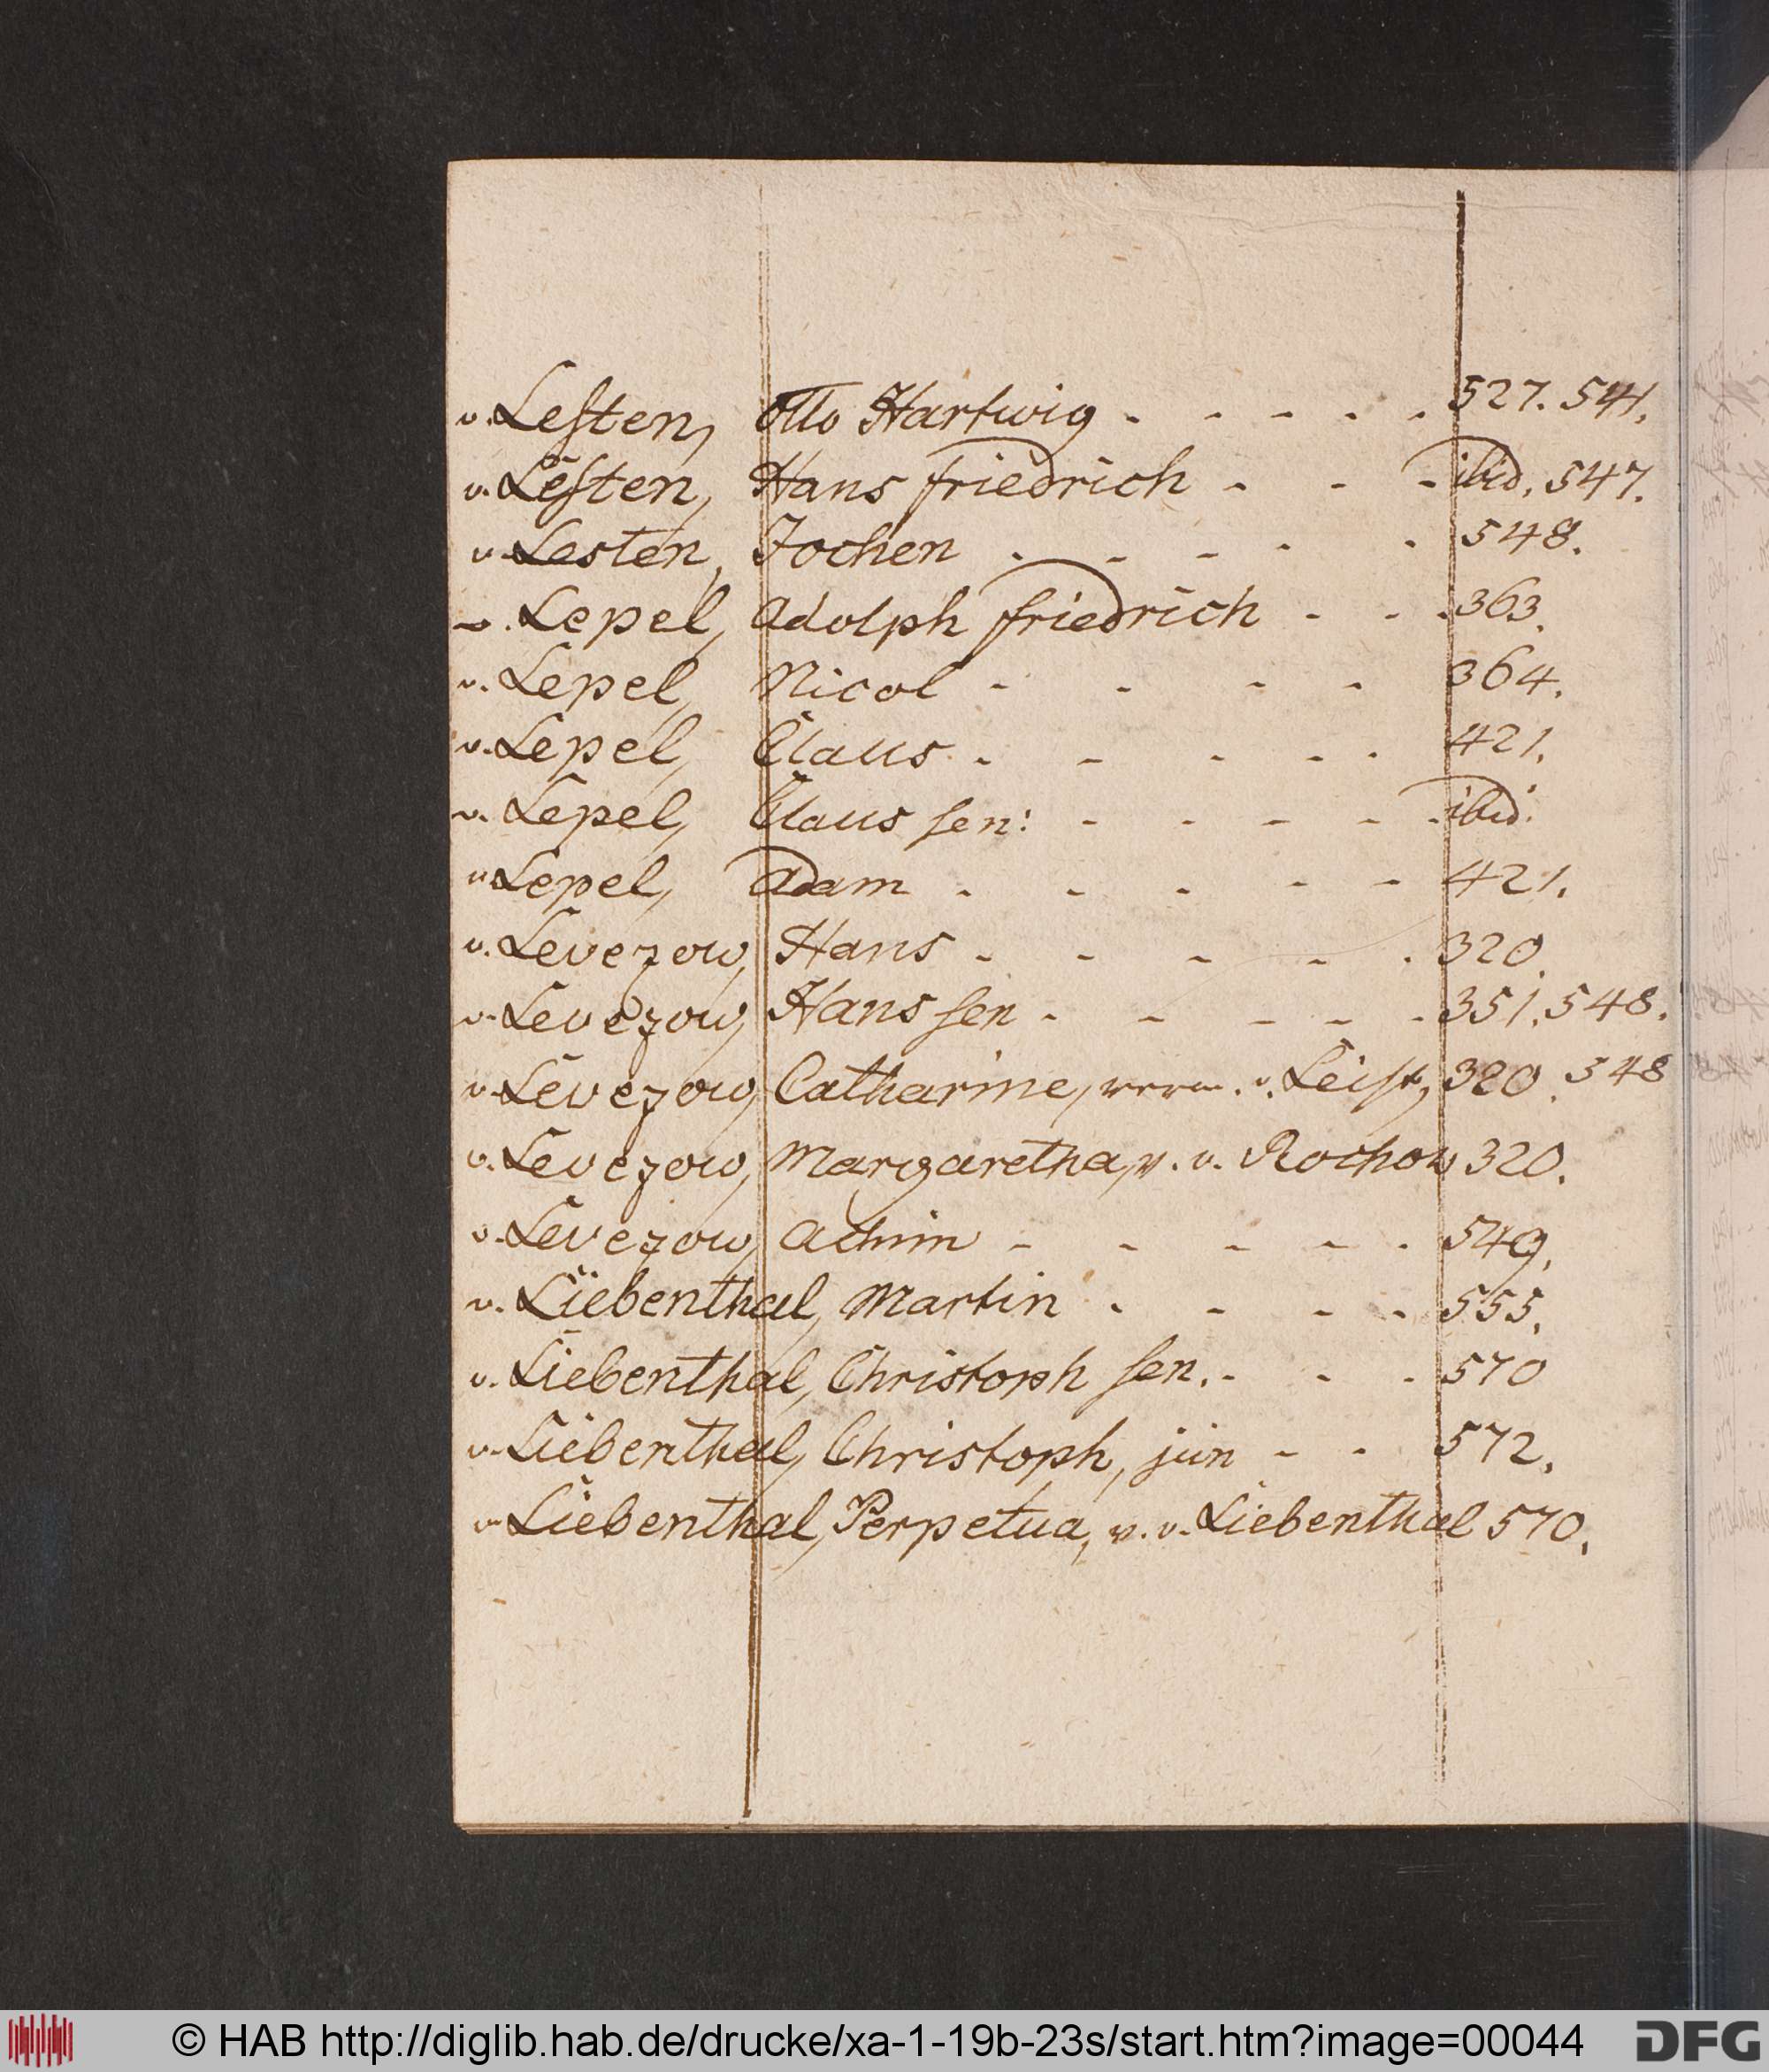 v. Leſten, Otto Hartwig - - - - - 527. 541.
v. Leſten, Hans Friedrich - - - ibid. 547.
v. Lesten, Jochen - - - - - 548.
v. Lepel, Adolph Friedrich - - - 363.
v. Lepel, Nicol - - - - 364.
v. Lepel, Claus - - - - - 421.
v. Lepel, Claus ſen: - - - - - ibid.
v. Lepel, Adam - - - - - 421.
v. Levezow, Hans - - - - - 320.
v. Levezow, Hans ſen - - - - - 351. 548.
v. Levezow, Catharine, verm. v. Leiſt, 320. 548
v. Levezow, Margaretha, v. v. Rochow 320.
v. Levezow, Achim - - - - - 549.
v. Liebenthal, Martin - - - - 555.
v. Liebenthal, Christoph ſen. - - - 570
v. Liebenthal, Christoph, jun - - 572.
v. Liebenthal, Perpetua, v. v. Liebenthal 570.
© HAB http://diglib.hab.de/drucke/xa-1-19b-23s/start.htm?image=00044 DFG